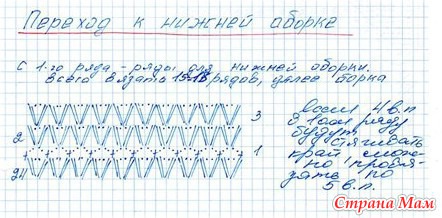 Переход к нижней оборке
С 1-го ряда - ряды для нижней оборки.
всего вязать 15-18 рядов, далее борка
3
2
1
24
если 4 в.п
в 1 ряду
будут
стягивать
край можно
но провя-
зать по
5 в.п.
Страна Мам